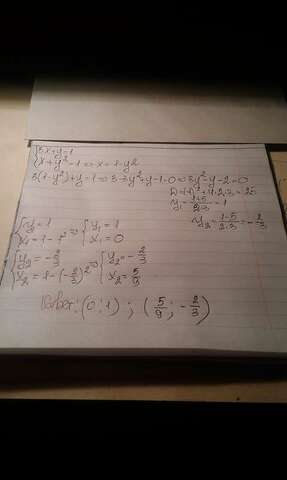 {3x+y=1
x+y²=1 ⇔ x=1-y²
3(1-y²)+y=1 ⇔ 3-3y²+y-1=0 ⇔ 3y²-y-2=0
D=(-1)²+4·2·3=25
y₁=(1+5)/(2·3)=1
y₂=(1-5)/(2·3)=-2/3
{y₁=1 ⇔ {y₁=1
x₁=1-1² x₁=0
{y₂=-2/3 ⇔ {y₂=-2/3
x₂=1-(-2/3)² x₂=5/9
Ответ: (0;1) ; (5/9 ; -2/3)